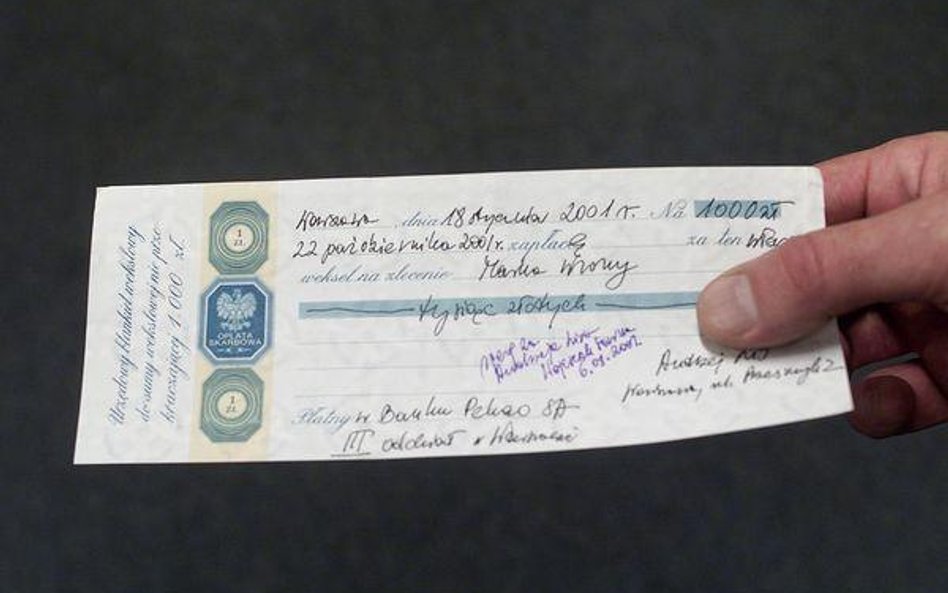 Urzędowy blankiet wekslowy
do sumy wekslowej nie prze-
kraczającej 1 000 zł.
1
ZŁ
OPŁATA
SKARBOWA
1
ZŁ
Warszawa, dnia 18 stycznia 2001 r. Na 1000 zł
22 października 2001 r. zapłacę za ten
weksel na zlecenie Marka Wrony
tysiąc złotych
poręczam za
Andrzeja
Wojciech
6.09.2001
Andrzej
Warszawa, ul. 2
Płatny w Banku Pekao SA
III oddział w Warszawie